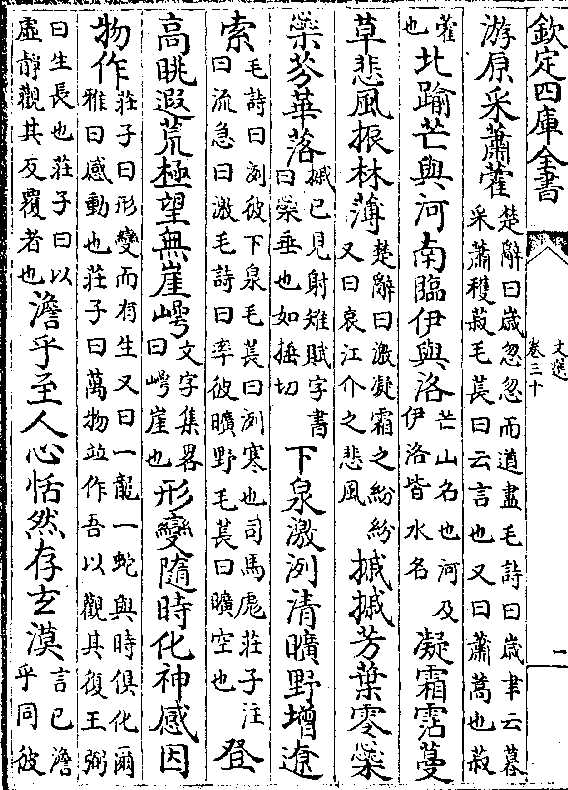 欽定四庫全書
文選
卷三十
二
游原采蕭藿
楚辭曰歳忽忽而遒盡毛詩曰歳聿云暮
采蕭穫菽毛萇曰云言也又曰蕭蒿也菽
藿
也
北踰芒與河南臨伊與洛
芒山名也河及
伊洛皆水名
凝霜霑蔓
草悲風振林薄
楚辭曰漱凝霜之紛紛
又曰哀江介之悲風
摵摵芳葉零橤
橤芬華落
摵已見射雉賦字書
曰橤垂也如捶切
下泉激洌清曠野增遼
索
毛詩曰洌彼下泉毛萇曰洌寒也司馬彪莊子注
曰流急曰激毛詩曰率彼曠野毛萇曰曠空也
登
高眺遐荒極望無崖崿
文字集畧
曰崿崖也
形變隨時化神感因
物作
莊子曰形變而有生又曰一龍一蛇與時俱化爾
雅曰感動也莊子曰萬物並作吾以觀其復王弼
曰生長也莊子曰以
虛靜觀其反覆者也
澹乎至人心恬然存玄漠
言己澹
乎同彼